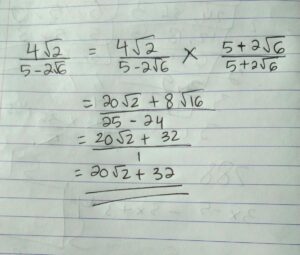 4√2 / 5-2√6 = 4√2 / 5-2√6 × 5+2√6 / 5+2√6
= 20√2 + 8√16 / 25 - 24
= 20√2 + 32 / 1
= 20√2 + 32